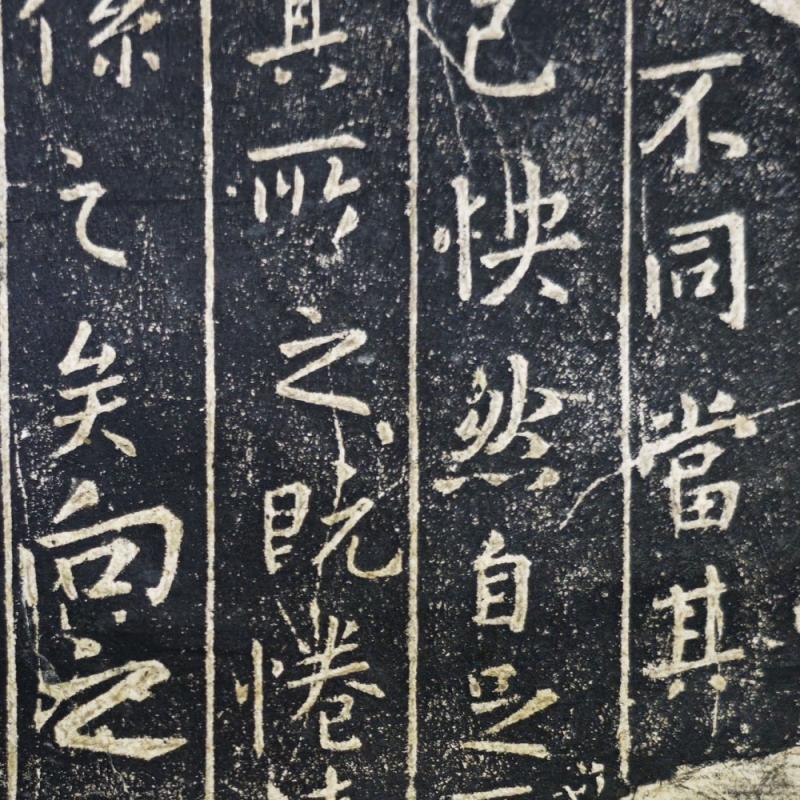 不同當其
己快然自足
其所之既惓
係之矣向之